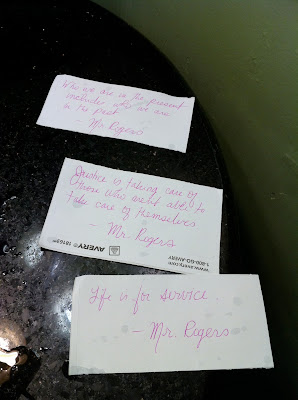 Who we are in the present
includes who we are
in the past
- Mr. Rogers
Justice is taking care of
those who aren't able to
take care of themselves
- Mr. Rogers
AVERY® 5816
www.avery.com
1-800-GO-AVERY
Life is for service.
- Mr. Rogers